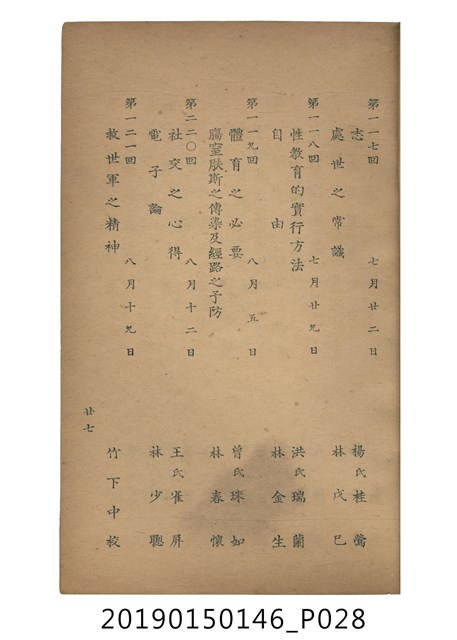 第一一七回 七月廿二日
志 楊氏桂鶯
處世之常識 林戊巳
第一一八回 七月廿九日
性教育的實行方法 洪氏瑞蘭
自由 林金生
第一一九回 八月五日
體育之必要 曾氏珠如
腸窒肤斯之傳染及經路之予防 林春懷
第一二〇回 八月十二日
社交之心得 王氏雀屏
電子論 林少聰
第一二一回 八月十九日
救世軍之精神 竹下中校
廿七
20190150146_P028